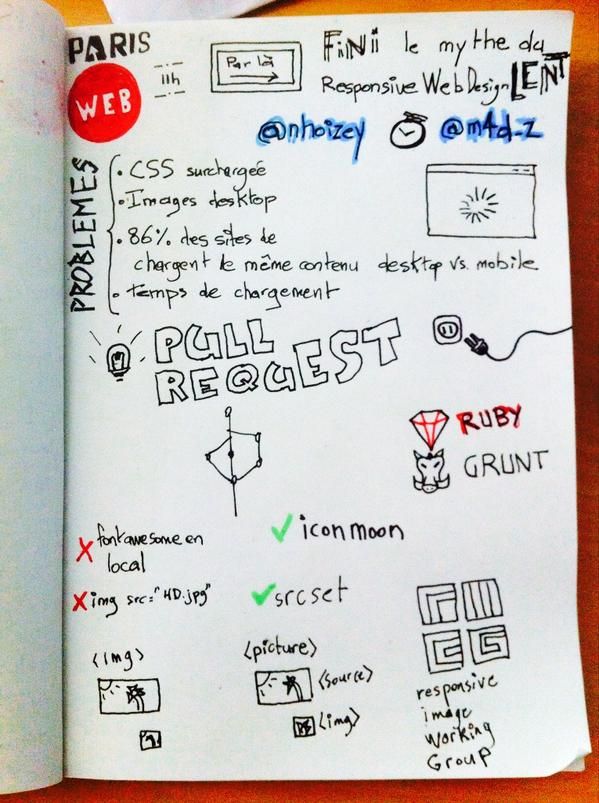 PARIS
WEB
11h
Par là
FiNi le mythe du
Responsive Web Design LENT
@nhoizey @m4d_z
PROBLEMES
. CSS surchargée
. Images desktop
. 86% des sites de
chargent le même contenu desktop vs. mobile
. temps de chargement
PULL
REQUEST
RUBY
GRUNT
X fontawesome en
local
✓ iconmoon
X img src="HD.jpg"
✓ srcset
<img>
<picture>
<source>
<img>
responsive
image
working
Group